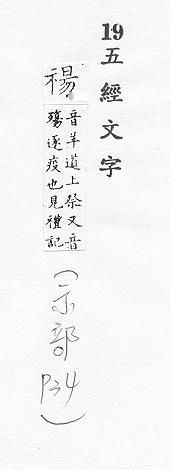 19五經文字
禓
音羊道上祭又音
殤逐疫也見禮記
(示部P34)